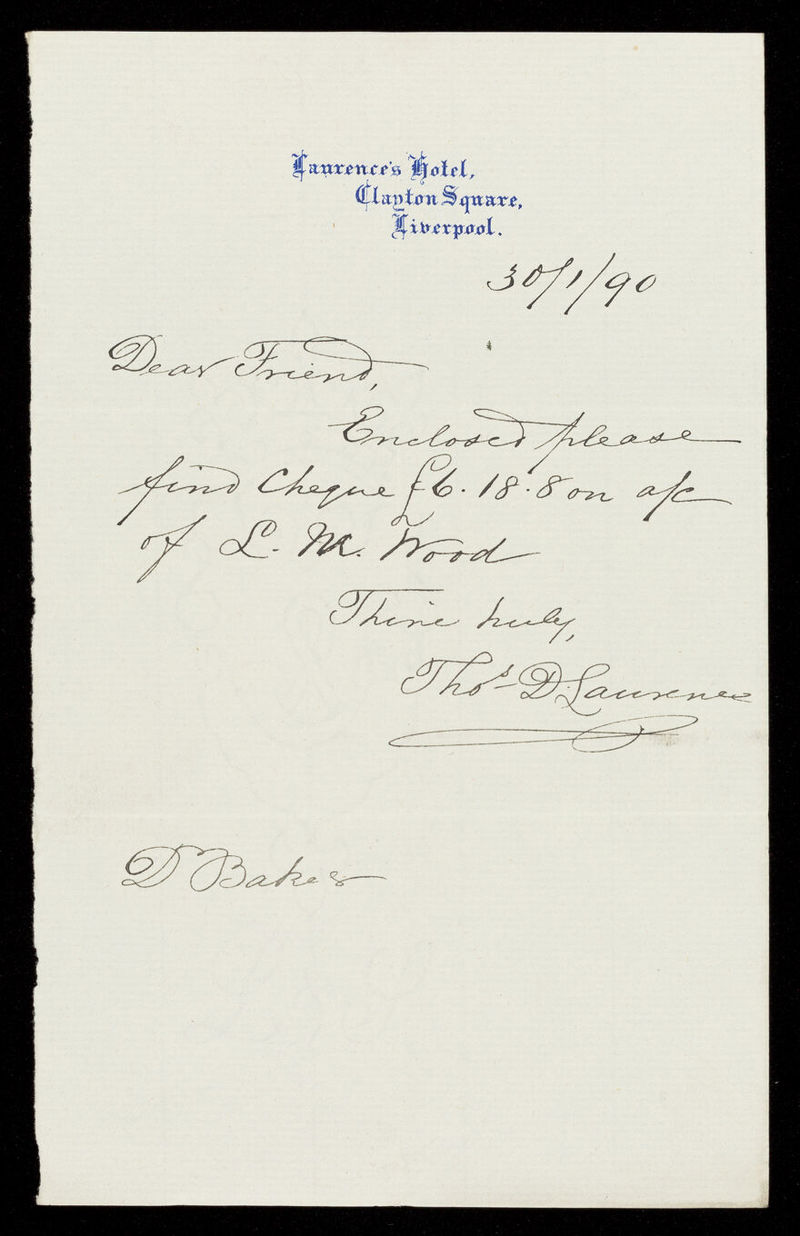 Laurence's Hotel,
Clayton Square,
Liverpool.
30/1/90
Dear Friend,
Enclosed please
find Cheque £6.18.8 on a/c
of L. M. Wood
Thine truly,
Thos. D. Laurence
Dr Baker